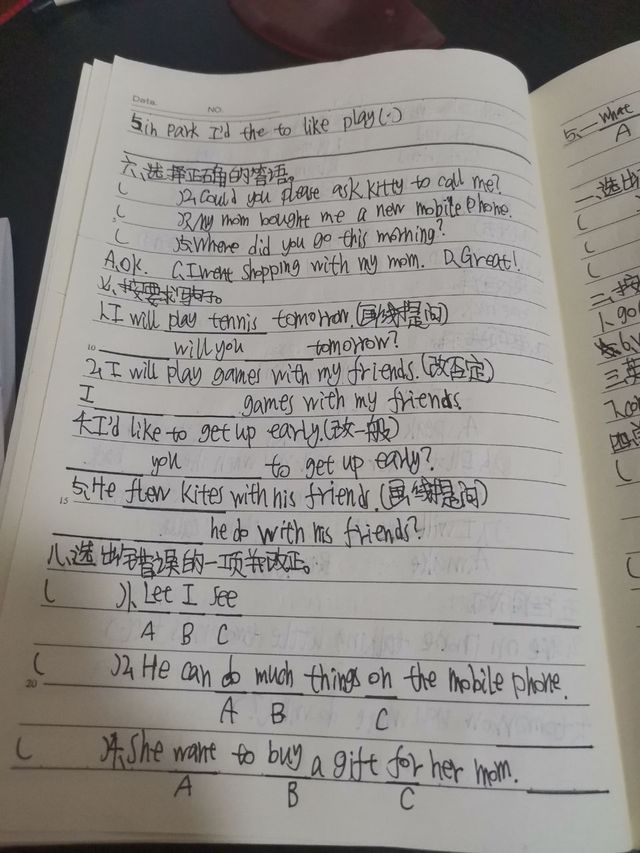 Data. NO.
5.in park I'd the to like play(.)
六、选择正确的答语。
( )2.Could you please ask kitty to call me?
( )3.My mom bought me a new mobile phone.
( )5.Where did you go this morning?
A.OK. C.I went shopping with my mom. D.Great!
七、按要求写句子。
1.I will play tennis tomorrow.(画线提问)
10 ____ will you ____ tomorrow?
2.I will play games with my friends.(改否定)
I ____ ____ games with my friends.
4.I'd like to get up early.(改一般)
____ you ____ to get up early?
15 5.He flew kites with his friends.(画线提问)
____ ____ he do with his friends?
八、选出错误的一项并改正。
( )1.Let I see ____
A B C
20 ( )2.He can do much things on the mobile phone. ____
A B C
( )4.She want to buy a gift for her mom. ____
A B C
5.—What
A
一、选出
(
(
(
二、按
1.go
三、
(